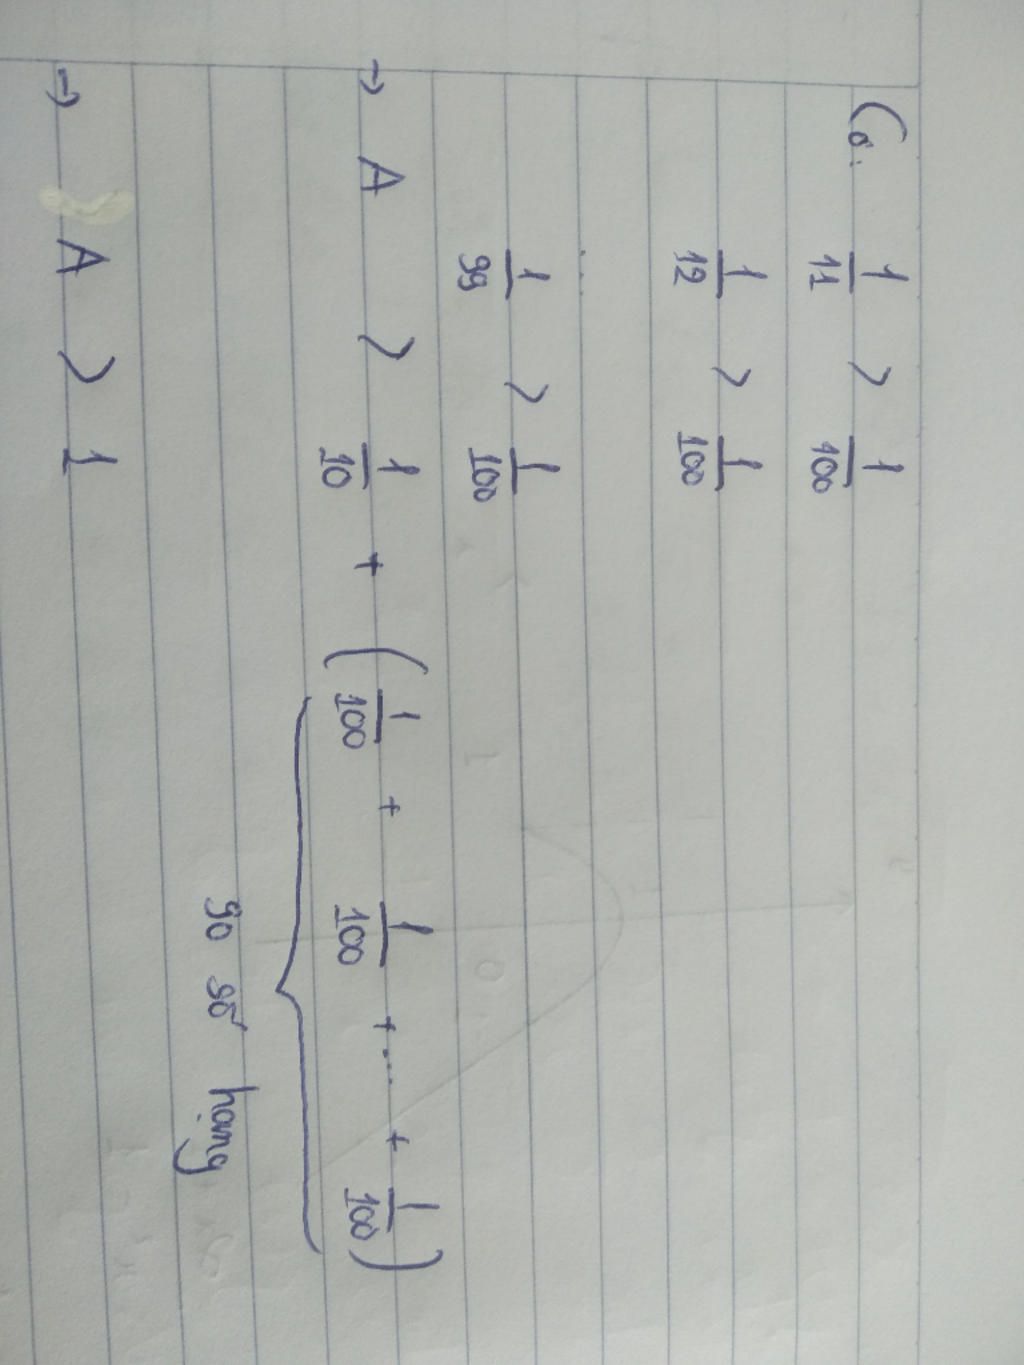 Có: 1/11 > 1/100
1/12 > 1/100
.....
1/99 > 1/100
→ A > 1/10 + (1/100 + 1/100 + ... + 1/100)
90 số hạng
→ A > 1